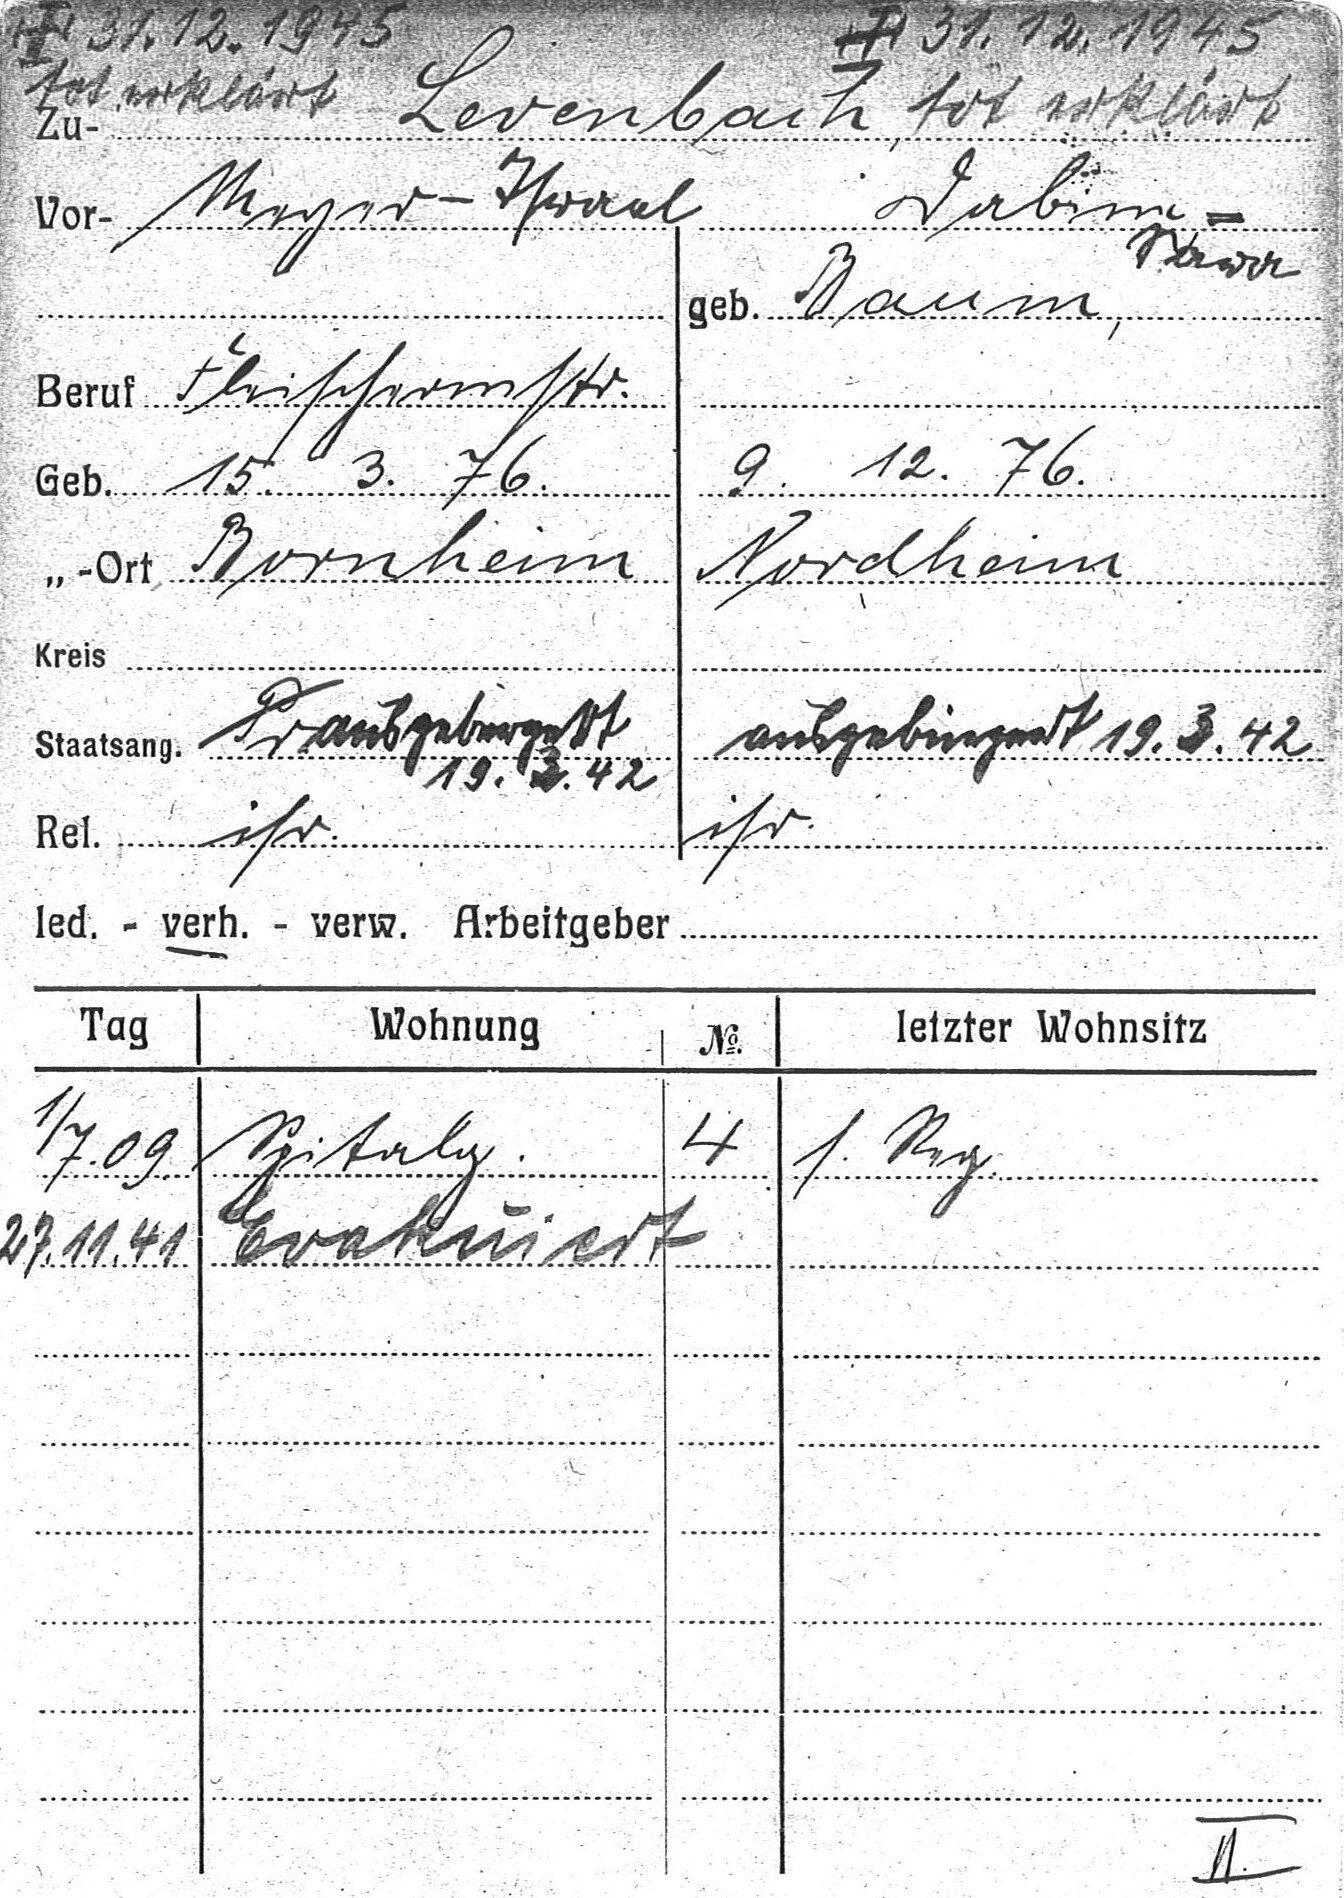 31.12.1945 31.12.1945
tot erklärt tot erklärt
Zu- Levenbach,
Vor- Meyer-Israel Sabine=
Sara
geb. Baum,
Beruf Fleischermstr.
Geb. 15. 3. 76. 9. 12. 76.
„-Ort Bornheim Nordheim
Kreis
Staatsang. Pr ausgebürgert ausgebürgert 19.3.42
19.3.42
Rel. isr. isr.
led. - verh. - verw. Arbeitgeber
Tag Wohnung No. letzter Wohnsitz
1/7.09 Spitalg. 4 s. Reg.
27.11.41 Evakuiert
II.